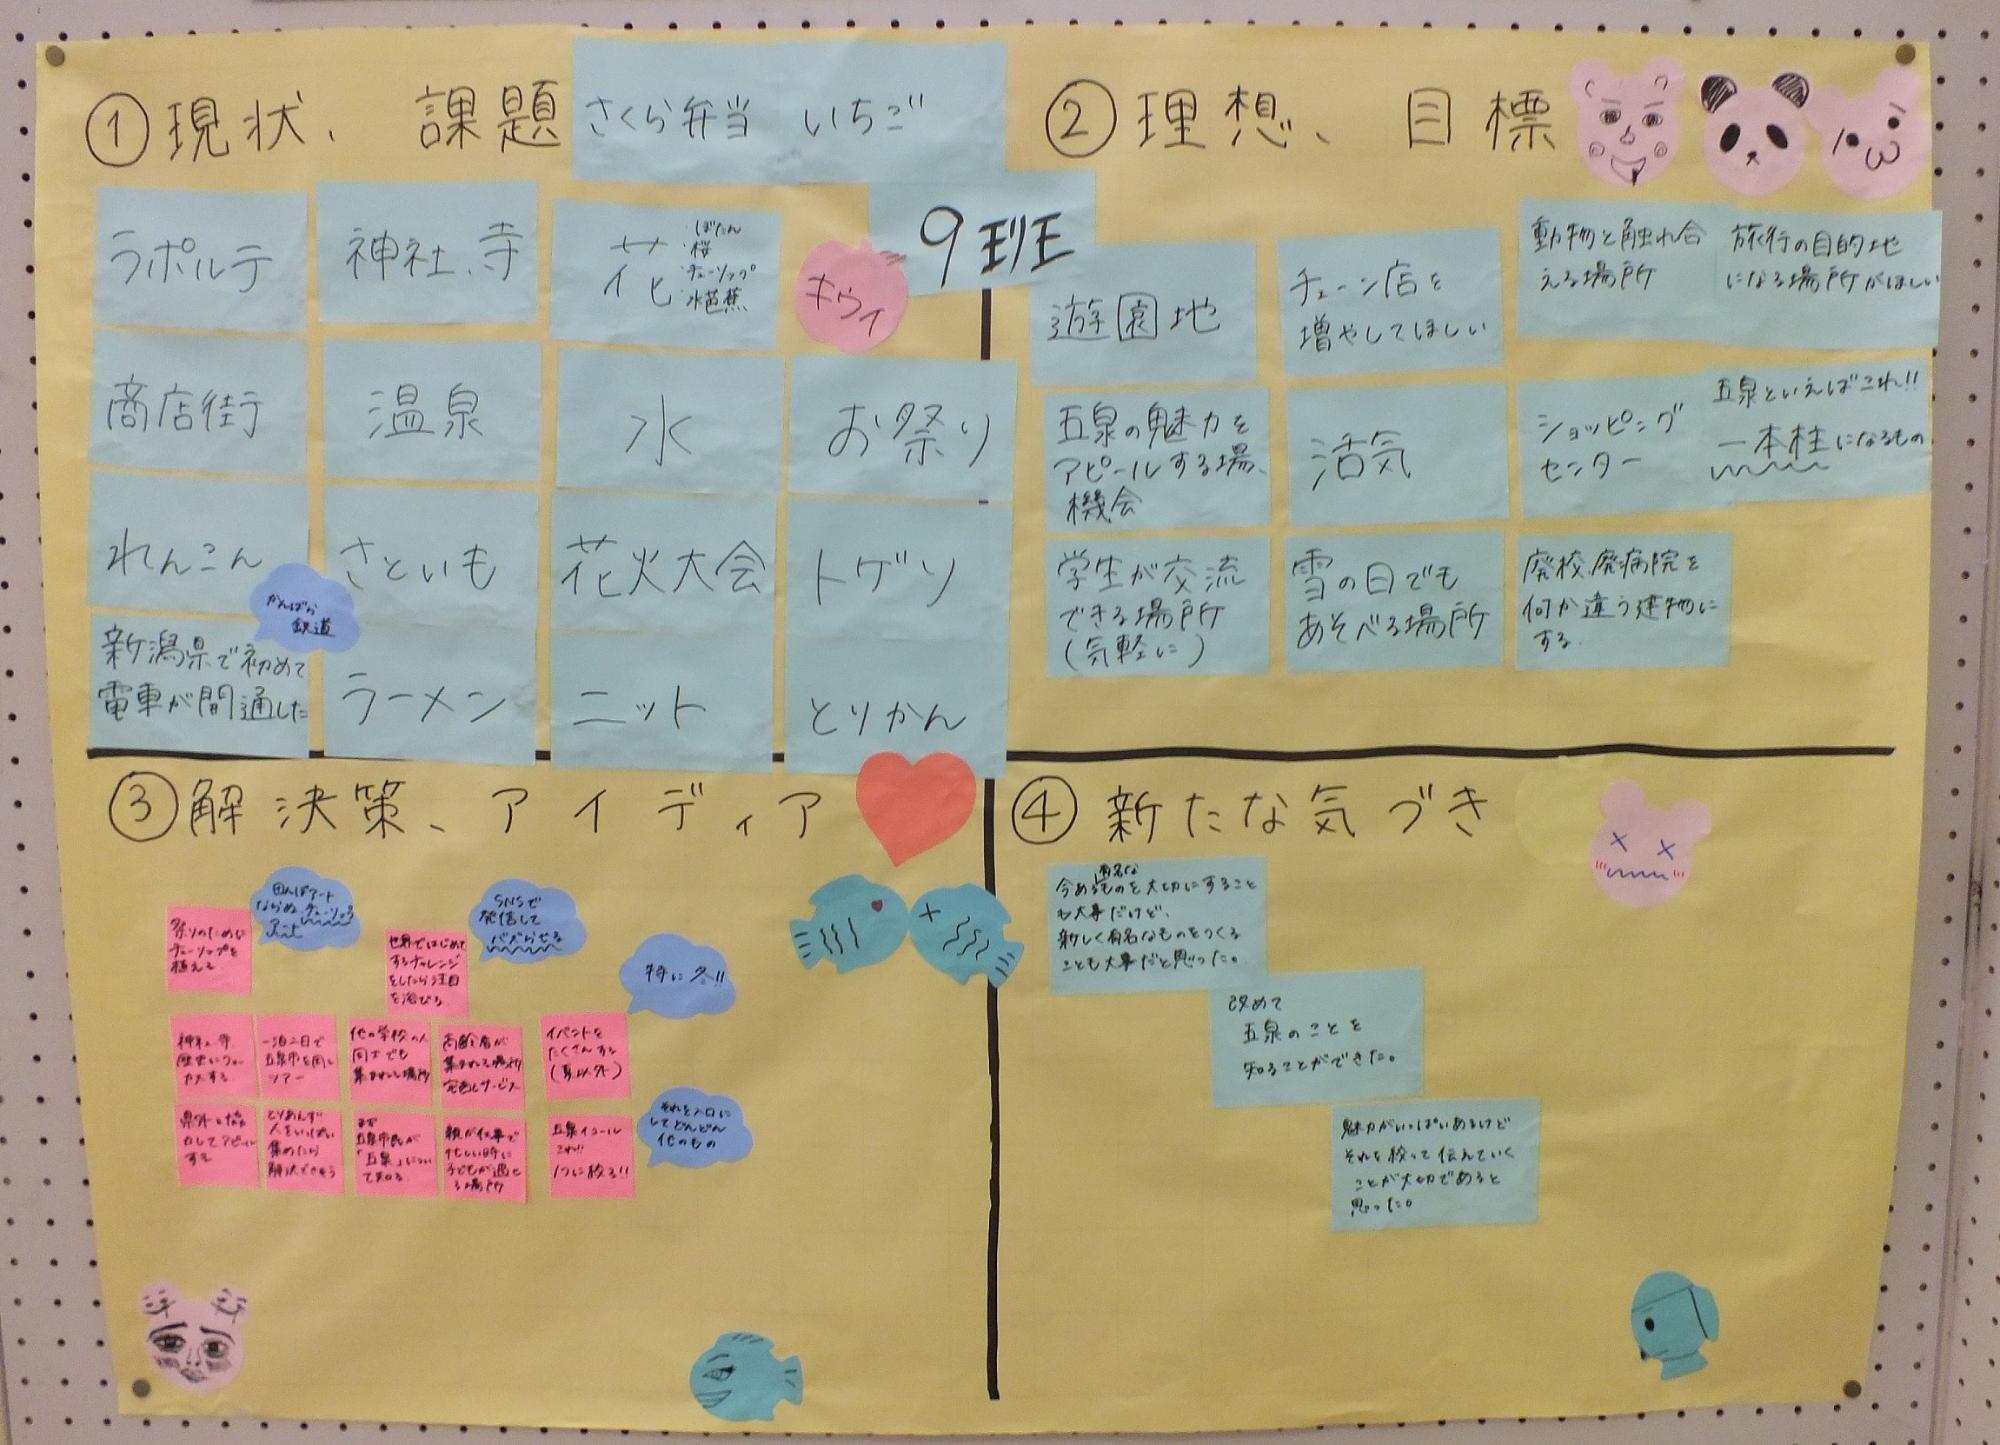 ①現状、課題
さくら弁当 いちご
9班
ラポルテ
神社、寺
花
・ぼたん
・桜
・チューリップ
・水芭蕉
キウイ
商店街
温泉
水
お祭り
れんこん
さといも
花火大会
トゲソ
がんばら
鉄道
新潟県で初めて
電車が開通した
ラーメン
ニット
とりかん
②理想、目標
遊園地
チェーン店を
増やしてほしい
動物と触れ合
える場所
旅行の目的地
になる場所がほしい
五泉の魅力を
アピールする場、
機会
活気
ショッピング
センター
五泉といえばこれ!!
一本柱になるもの
学生が交流
できる場所
(気軽に)
雪の日でも
あそべる場所
廃校、廃病院を
何か違う建物に
する。
③解決策、アイディア
祭りのために
チューリップを
植える
田んぼアート
ならぬチューリップ
アート
世界ではじめて
するチャレンジ
をしたら注目
を浴びる
SNSで
発信して
バズらせる
特に冬!!
神社、寺
歴史にフォー
カスする
一泊二日で
五泉市を回る
ツアー
他の学校の人
同士でも
集まれる場所
高齢者が
集まれる場所
宅急とサービス
イベントを
たくさんする
(夏以外)
県外と協
力してアピール
する
とりあえず
人をいっぱい
集めたら
解決できそう
まず
五泉市民が
「五泉」につい
て知る
親が仕事で
忙しい時に
子どもが過せ
る場所
五泉イコール
これ!!
1つに絞る!!
それを入口に
してどんどん
他のもの
④新たな気づき
今ある有名なものを大切にすること
も大事だけど、
新しく有名なものをつくる
ことも大事だと思った。
改めて
五泉のことを
知ることができた。
魅力がいっぱいあるけど
それを絞って伝えていく
ことが大切であると
思った。